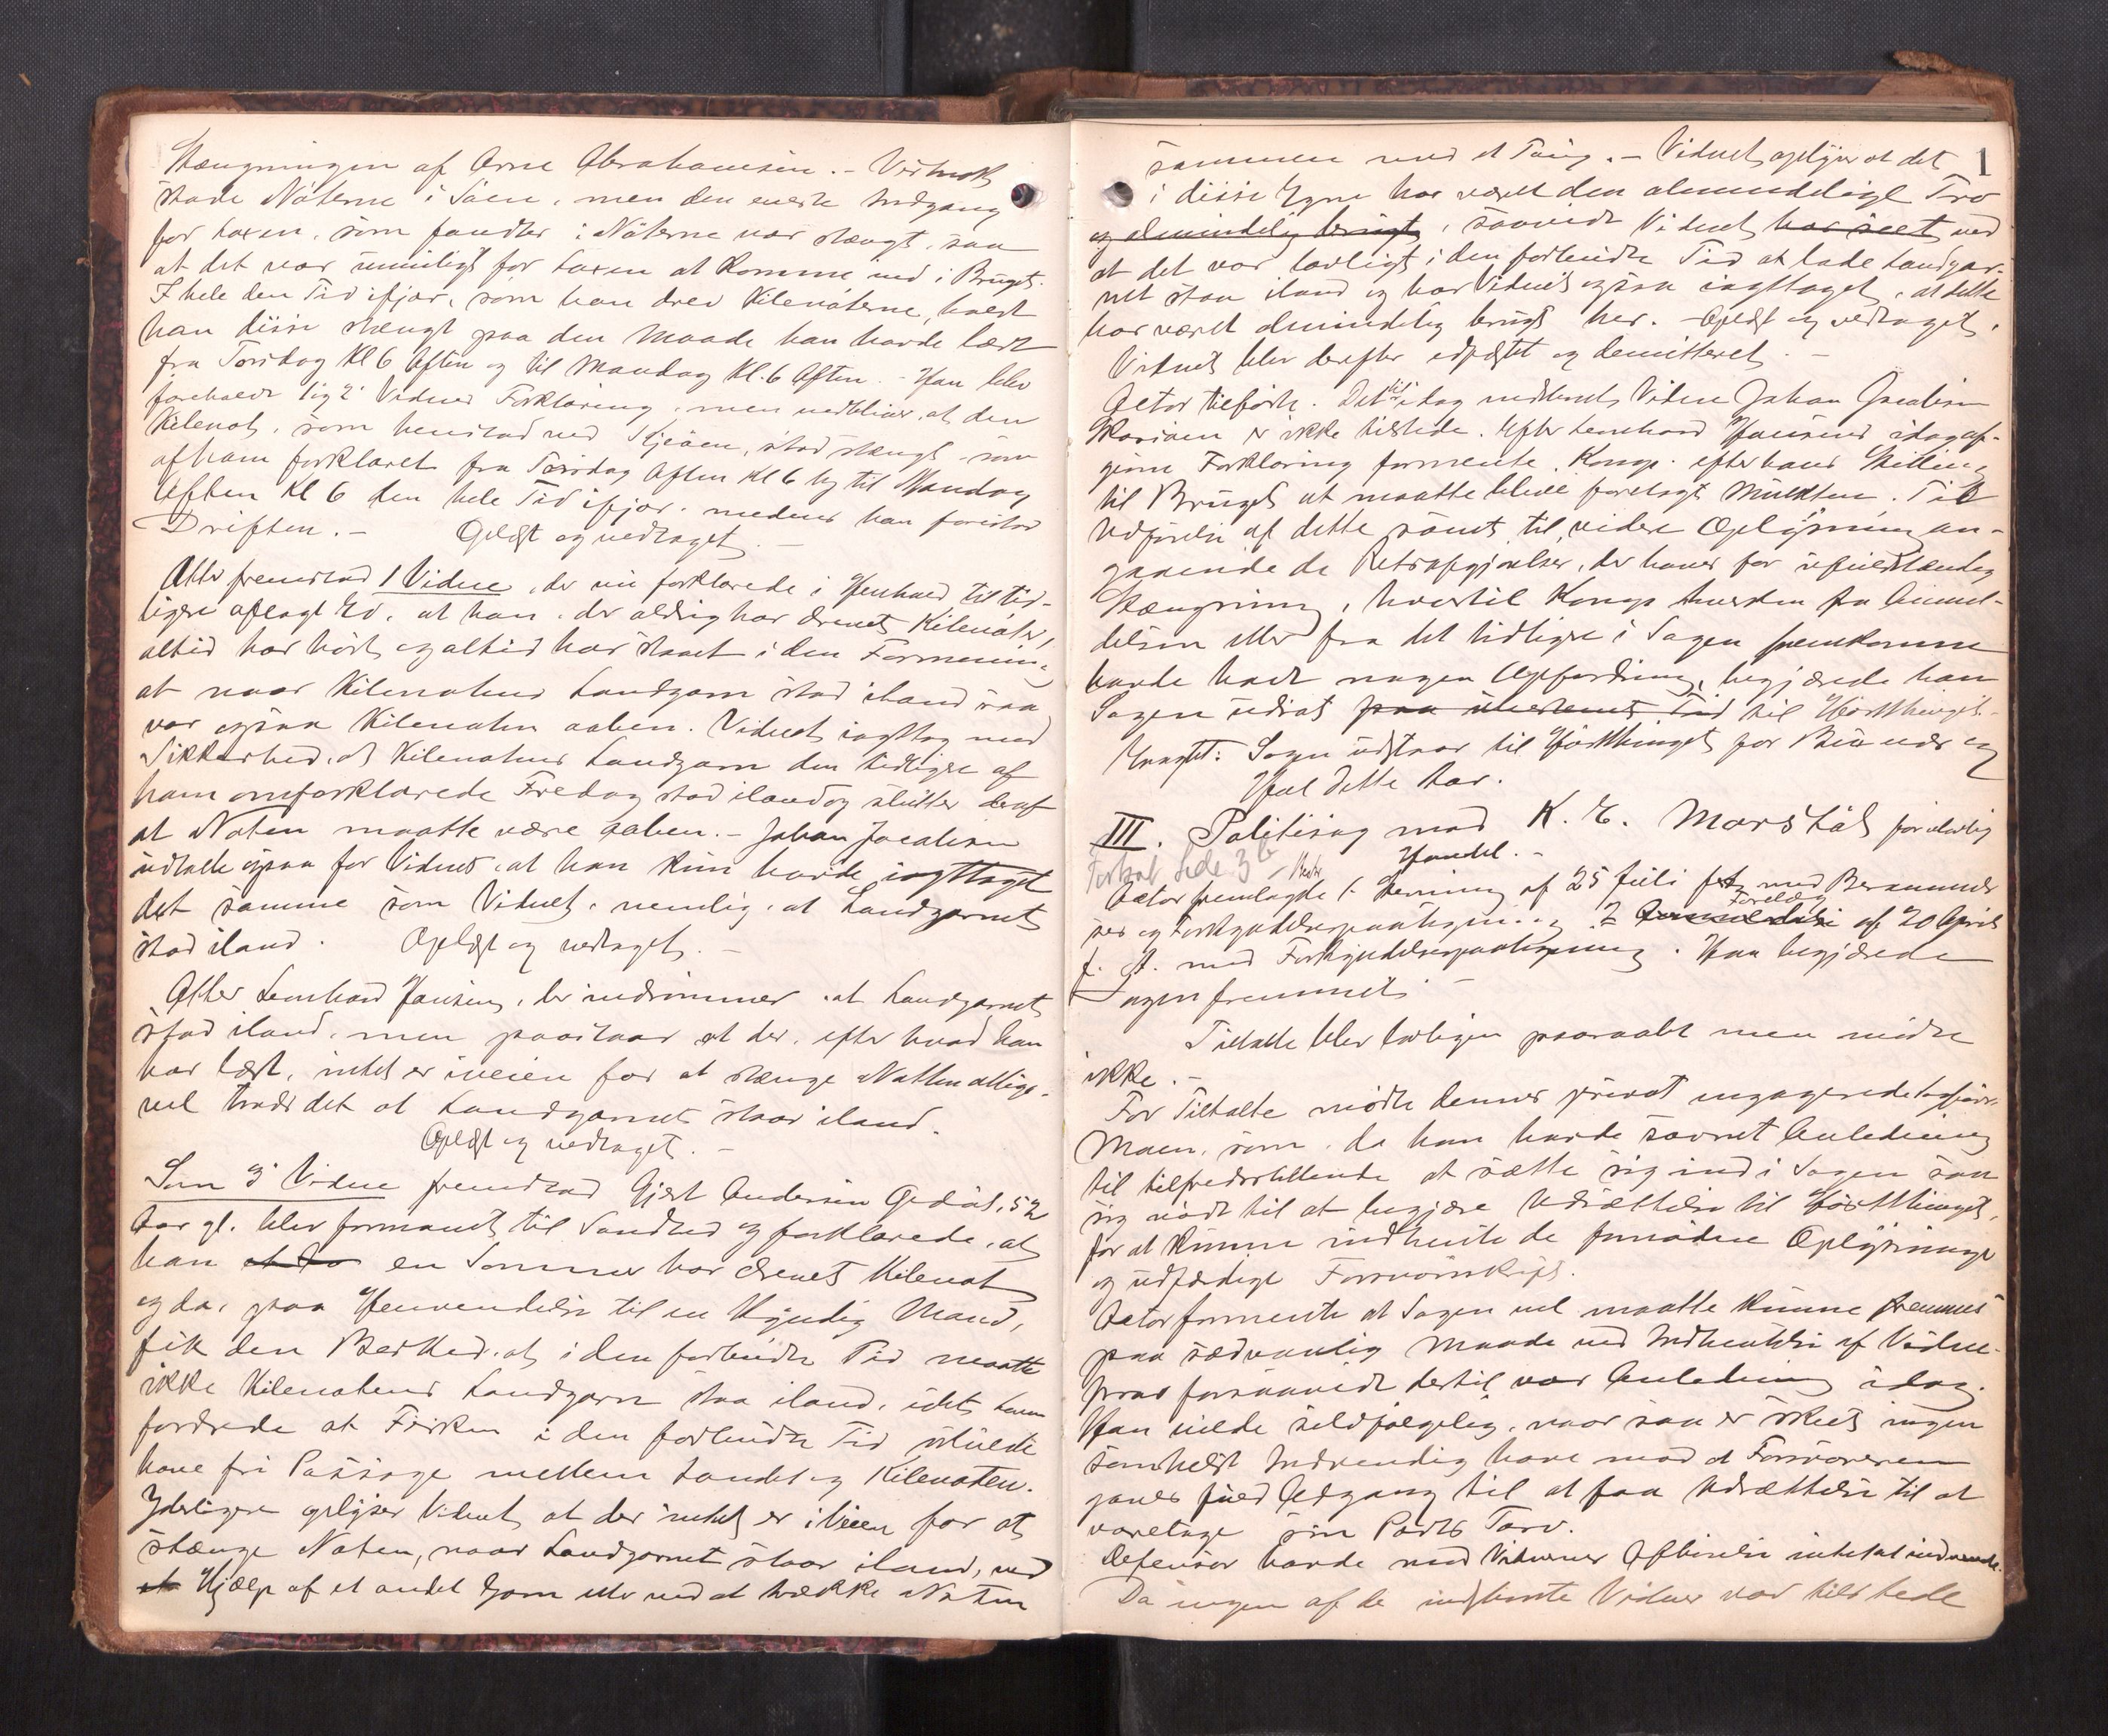 Stængningen af Arne Abrahamsen. - Vistnok
stode Nöterne i Söen, men den eneste Indgang
for Laxen, som fandtes i Nöterne var stængt, saa
at det var umuligt for Laxen at komme ind i Bruget.
I hele den Tid ifjor, som han drev Kilenöterne, holdt
han disse stængt paa den Maade han havde lært
fra Torsdag Kl 6 Aften og til Mandag Kl. 6 Aften. - Han blev
foreholdt 2' Vidnes Forklaring, men vedbliver, at den
Kilenot, som henstod ved Kjeöen, stod stængt - som
af ham forklaret fra Torsdag Aften Kl 6 og til Mandag
Aften Kl 6 den hele Tid ifjor, medens han forestod
Driften. - Oplæst og vedtaget. -
Atter fremstod 1 Vidne, der nu forklarede i Henhold til tid-
ligere aflagt Ed, at han, der aldrig har drevet Kilenöter,
altid har hört og altid har staaet i den Formening
at naar Kilenotens Landgarn stod iland saa
var ogsaa Kilenoten aaben. Vidnet iagttog med
Sikkerhed, at Kilenotens Landgarn den tidligere af
ham omforklarede Fredag stod iland og slutter deraf
at Noten maatte være aaben. - Johan Jocabsen
udtalte ogsaa for Vidnet, at han kun havde iagttaget
det samme som Vidnet, nemlig, at Landgarnet
stod iland. Oplæst og vedtaget. -
Atter Leonhard Hansen, der indrömmer at Landgarnet
stod iland, men paastaar at der, efter hvad han
har lært, intet er iveien for at stænge Notten allige-
vel trods det at Landgarnet staar iland.
Oplæst og vedtaget. -
Som 3' Vidne fremstod Gjert Andersen Gedöl, 52
Aar gl. blev formanet til Sandhed og forklarede, at
han en Sommer har drevet Kilenot
og da, paa Henvendelse til en kyndig Mand,
fik den Besked, at i den forbudte Tid maatte
ikke Kilenotens Landgarn staa iland, idet Loven
fordrede at Fisken i den forbudte Tid skulde
have fri Passage mellem Landet og Kilenoten.
Yderligere oplyser Vidnet, at der intet er iveien for at
stænge Noten, naar Landgarnet staar iland, ved
Hjælp af et andet Garn eller ved at trække Noten
1
sammen med et Taug. - Vidnet oplyser at det
i disse Egne har været den almindelige Tro
og almindelig brugt, saavidt Vidnet har seet ved
at det var lovligt i den forbudte Tid at lade Landgar-
net staa iland og har Vidnet ogsaa iagttaget, at dette
har været almindelig brugt her. - Oplæst og vedtaget.
Vidnet blev derefter edfæstet og demitteret. -
Actor tilförte. Det til idag indstevnte Vidne Johan Jocabsen
er ikke tilstede. Efter Leonhard Hansens idag af-
givne Forklaring formente Komp. efter hans Stilling
til Bruget at maatte blive forelagt Mulkten. Til
Udförelse af dette samt til videre Oplysning an-
gaaende de Retsafgjörelser, der haves for ufuldstændig
Stængning, hvortil Komp hverken fra Anmel-
delsen eller fra det tidligere i Sagen fremkomne
havde havt nogen Opfordring, begjærede han
Sagen udsat paa ubestemt Tid til Hösttinget. -
Eragtet: Sagen udstaar til Hösttinget for
dette Aar.
III. Politisag mod K. E. Marstål for ulovlig
Handel. -
Fortsat Side 36
Actor fremlagde 1. Stevning af 25 Juli med Berammelse
ser og Forkyndelsespaategning 2 Forelæg af 20 April
f. A. med Forkyndelsespaategning. Han begjærede
Sagen fremmet. -
Tiltalte blev lovligen paaraabt men mödte
ikke. -
For Tiltalte mödte dennes privat engagerede Lagförer
Moen, som, da han havde savnet Anledning
til tilfredsstillende at sætte sig ind i Sagen saa
sig nödt til at begjære Udsættelse til Hösttinget,
for at kunne indhente de fornödne Oplysninger
og udfærdige Forsvarsskrift.
Actor formente at Sagen vel maatte kunne fremmes
paa sædvanlig Maade ved Indhentelse af Vidne-
prov forsaavidt dertil var Anledning idag.
Han vilde selvfölgelig, naar saa er skeet, ingen
somhelst Indvending have mod at Forsvareren
gaves fuld Adgang til at faa Udsættelse til at
varetage sin Parts Tarv.
Defensor havde mod Vidnernes Afhörelse intet at indvende.
Da ingen af de indstevnte Vidner var tilstede